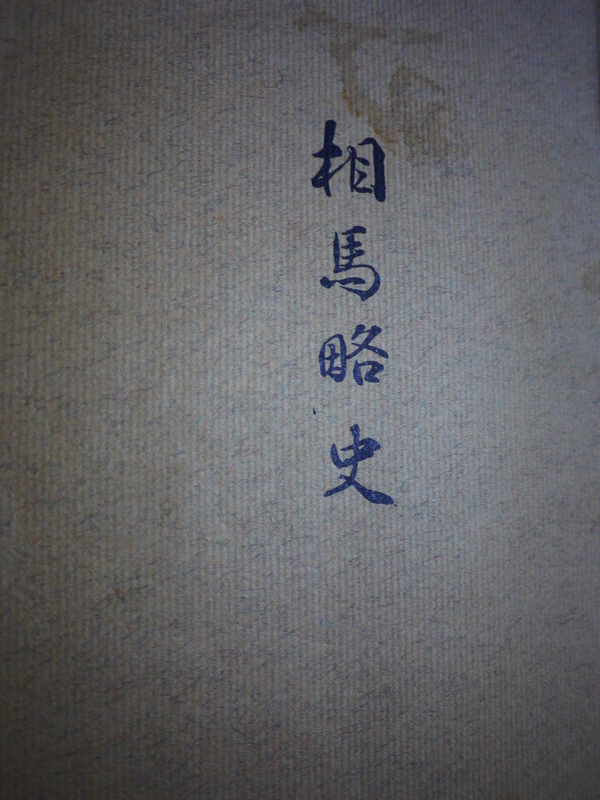 相馬略史